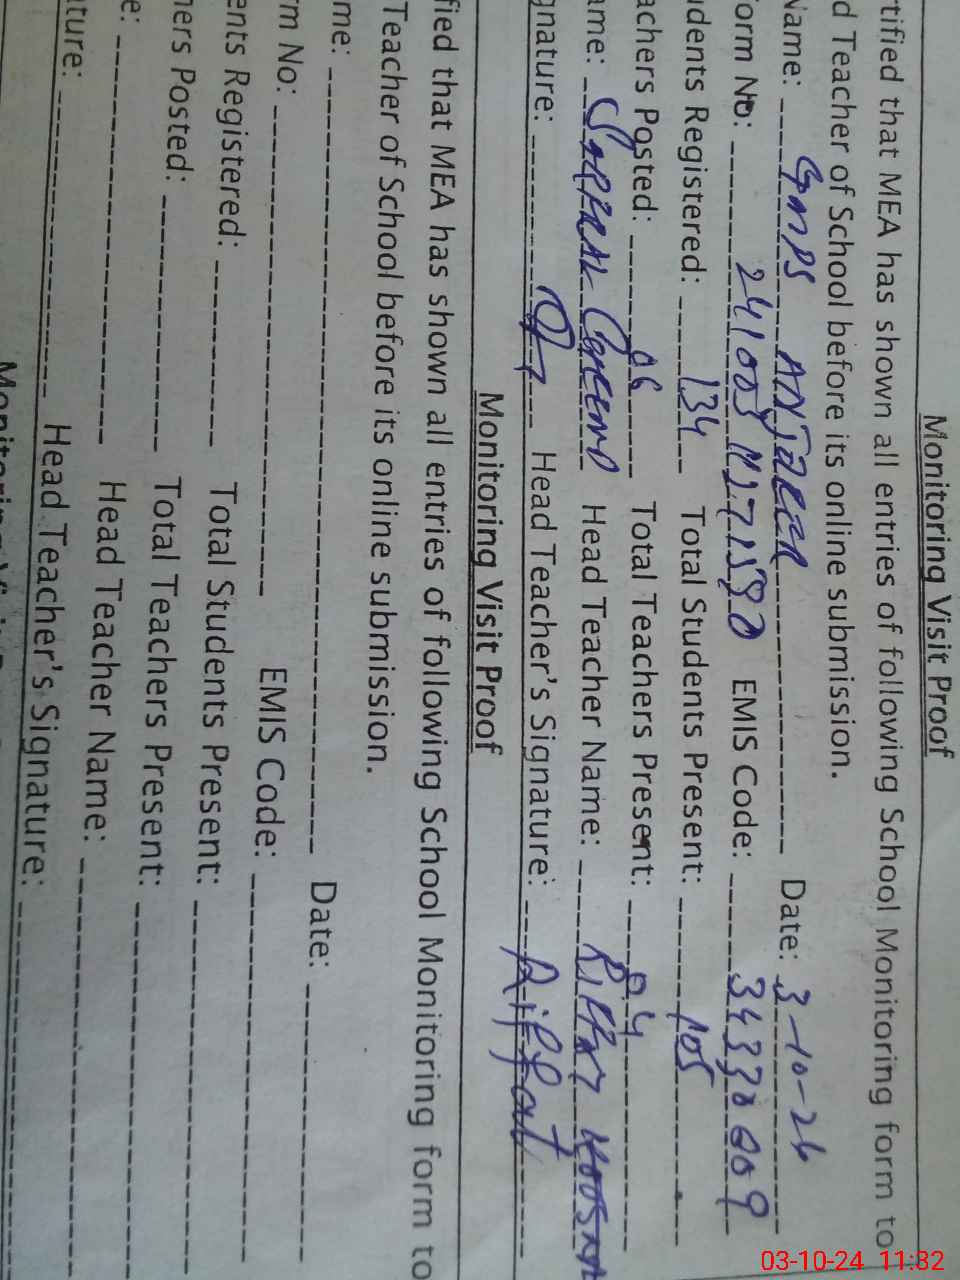 Monitoring Visit Proof
rtified that MEA has shown all entries of following School Monitoring form to
d Teacher of School before its online submission.
Name: GMPS Date: 3-10-24
orm No: EMIS Code: 34330009
udents Registered: 134 Total Students Present: 105
achers Posted: 06 Total Teachers Present: 04
ame: Head Teacher Name:
gnature: Head Teacher's Signature: Riffat
Monitoring Visit Proof
fied that MEA has shown all entries of following School Monitoring form to
Teacher of School before its online submission.
me: Date:
rm No: EMIS Code:
ents Registered: Total Students Present:
hers Posted: Total Teachers Present:
e: Head Teacher Name:
ature: Head Teacher's Signature:
03-10-24 11:32